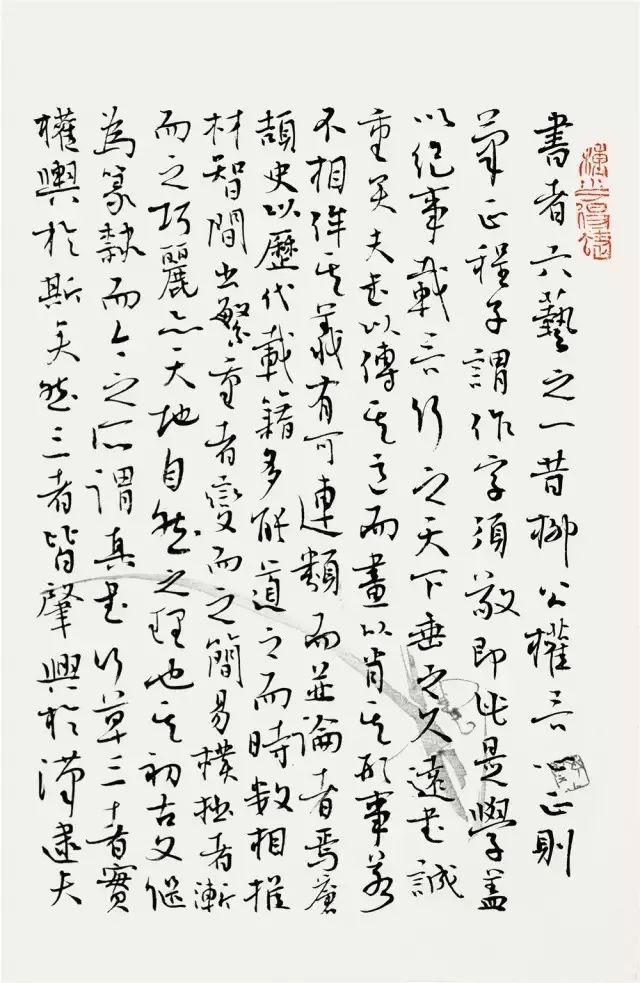 書者六藝之一昔柳公權言心正則
筆正程子謂作字須敬即此是學蓋
以紀事載言行之天下垂之久遠書誠
重矣夫書以傳其言而畫以肖其形事若
不相侔其義有可連類而並論者焉蒼
頡史以歷代載籍多能道之而時數相推
材智間出繁重者變而之簡易樸拙者漸
而之巧麗亦天地自然之理也其初古文俶
為篆隸而今之所謂真書行草三者實
權輿於斯矣然三者皆肇興於漢逮夫